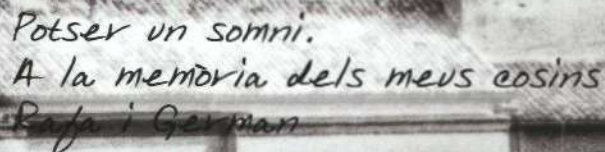 Potser un somni.
A la memòria dels meus cosins
Rafa i German